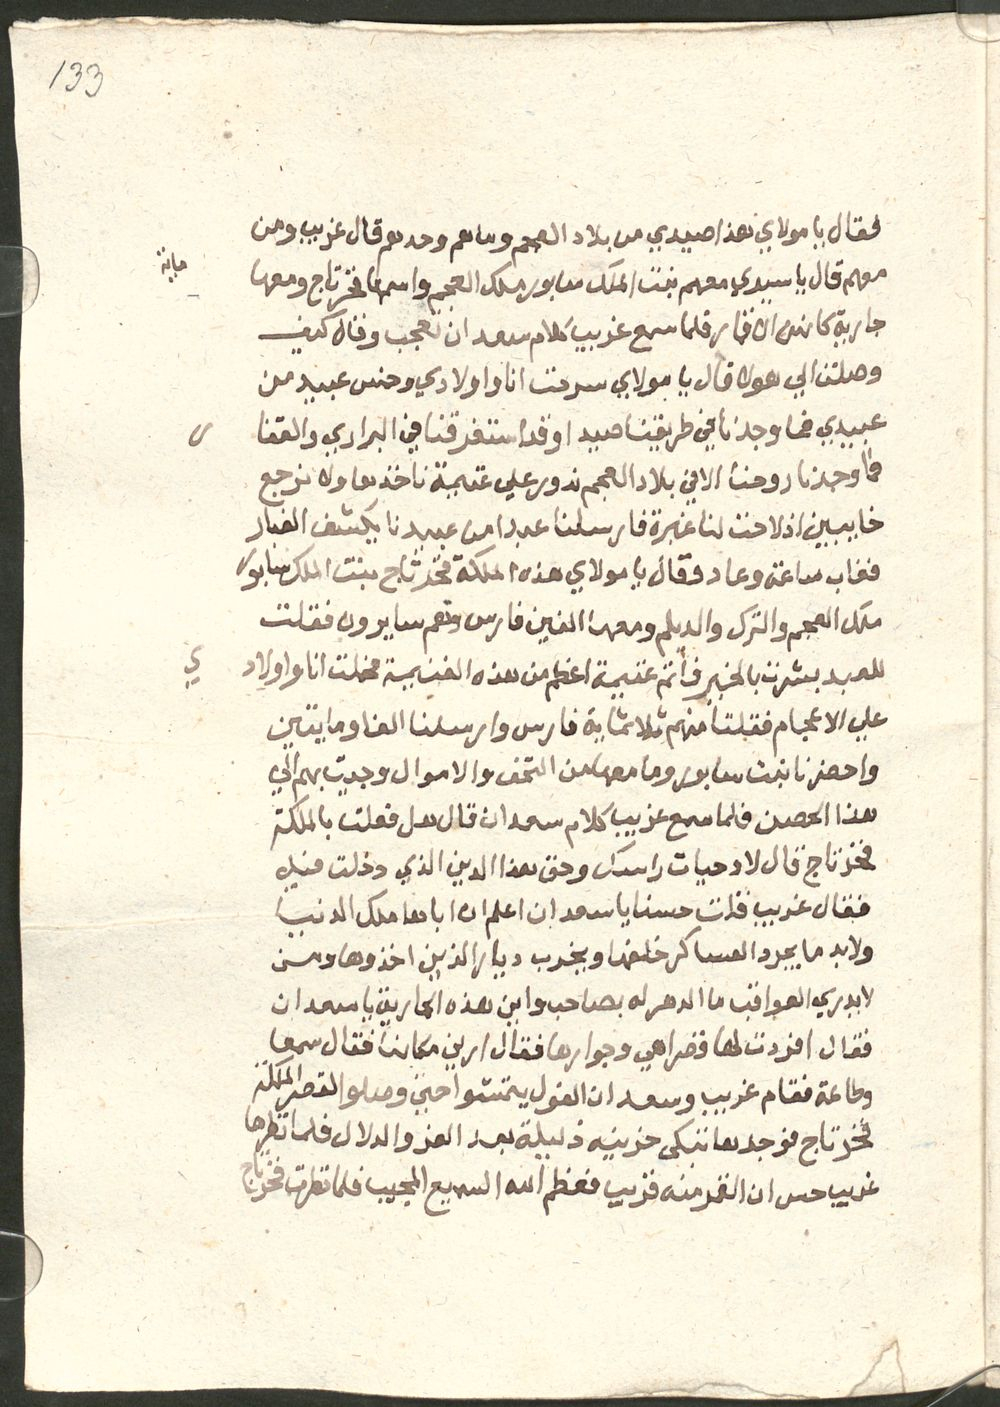 133
فقال يا مولاي هذا صيدي من بلاد العجم وماهم وحدهم قال غريب ومن
معهم قال يا سيدي معهم بنت الملك سابور ملك العجم واسمها فخر تاج ومعها ماية
جارية كانهن الاقمار فلما سمع غريب كلام سعدان تعجب وقال كيف
وصلت الي هولا قال يا مولاي سرحت انا واولادي وخمس عبيد من
عبيدي فما وجدنا في طريقنا صيد او قد استفرقنا في البراري والقفا ر
فما وجدنا روحنا الا في بلاد العجم ندور علي غنيمة ناخذها ولا نرجع
خايبين اذ لاحت لنا غبرة فارسلنا عبدا من عبيدنا يكشف الغبار
فغاب ساعة وعاد وقال يا مولاي هذه الملكة فخر تاج بنت الملك سابور
ملك العجم والترك والديلم ومعها الفين فارس وهم سايرون فقلت
للعبد بشرت بالخير فاثم غنيمة اعظم من هذه الغنيمة فحملت انا واولاد ي
علي الاعجام فقتلنا منهم ثلاثماية فارس وارسلنا الفا ومايتين
واحضرنا بنت سابور وما معها من التحف والاموال وجيت بهم الي
هذا الحصن فلما سمع غريب كلام سعدان قال هل فعلت بالملكة
فخر تاج قال لا وحيات راسك وحق هذا الدين الذي دخلت فيه
فقال غريب فعلت حسنا يا سعدان اعلم ان اباها ملك الدنيا
ولابد ما يجرد العساكر خلفها ويخرب ديار الذين اخذوها ومن
لا يدري العواقب ما الدهر له بصاحب واين هذه الجارية يا سعدان
فقال افردت لها قصرا هي وجوارها فقال ارين مكانها فقال سمعا
وطاعة فقام غريب وسعدان الغول يتمشوا حتي وصلوا لقصر الملكة
فخر تاج فوجدها تبكي حزينه ذليلة بعد العز والدلال فلما نظرها
غريب حس ان القمر منه قريب فعظم الله السميع المجيب فلما نظرت فخر تاج